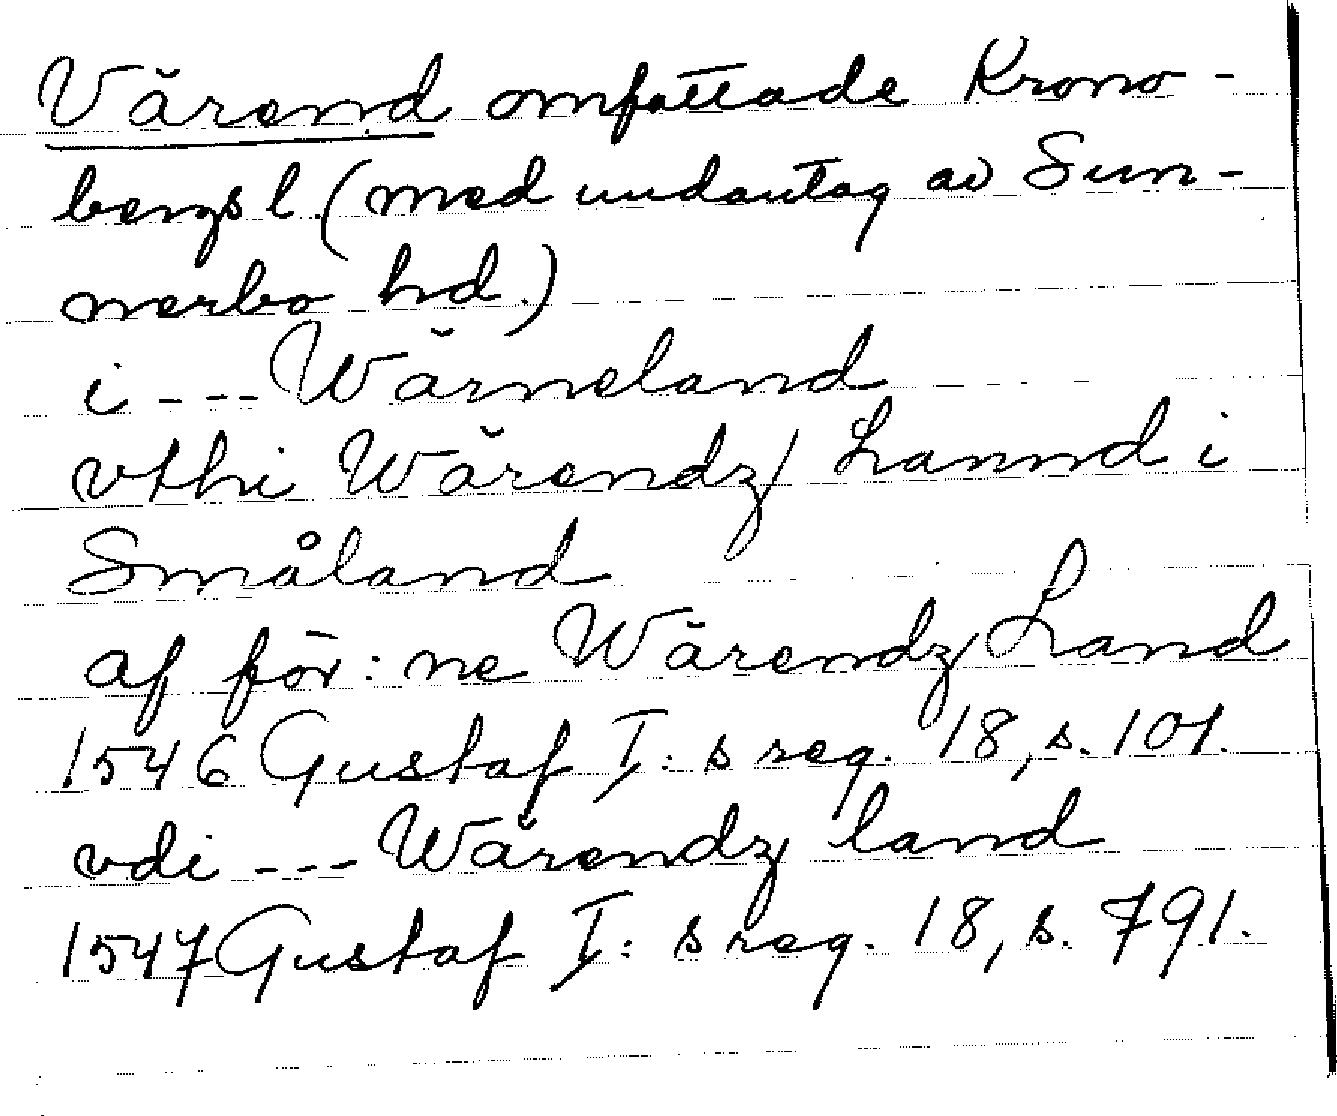 Värend omfattade Krono-
bergs l. (med undantag av Sun-
nerbo hd.)
i --- Wärneland
vthi Wärendz/ Lannd i
Småland
af för: ne Wärendz Land
1546 Gustaf I: s reg. 18, s. 101.
vdi --- Wärendz land
1547 Gustaf I: s reg. 18, s. 791.